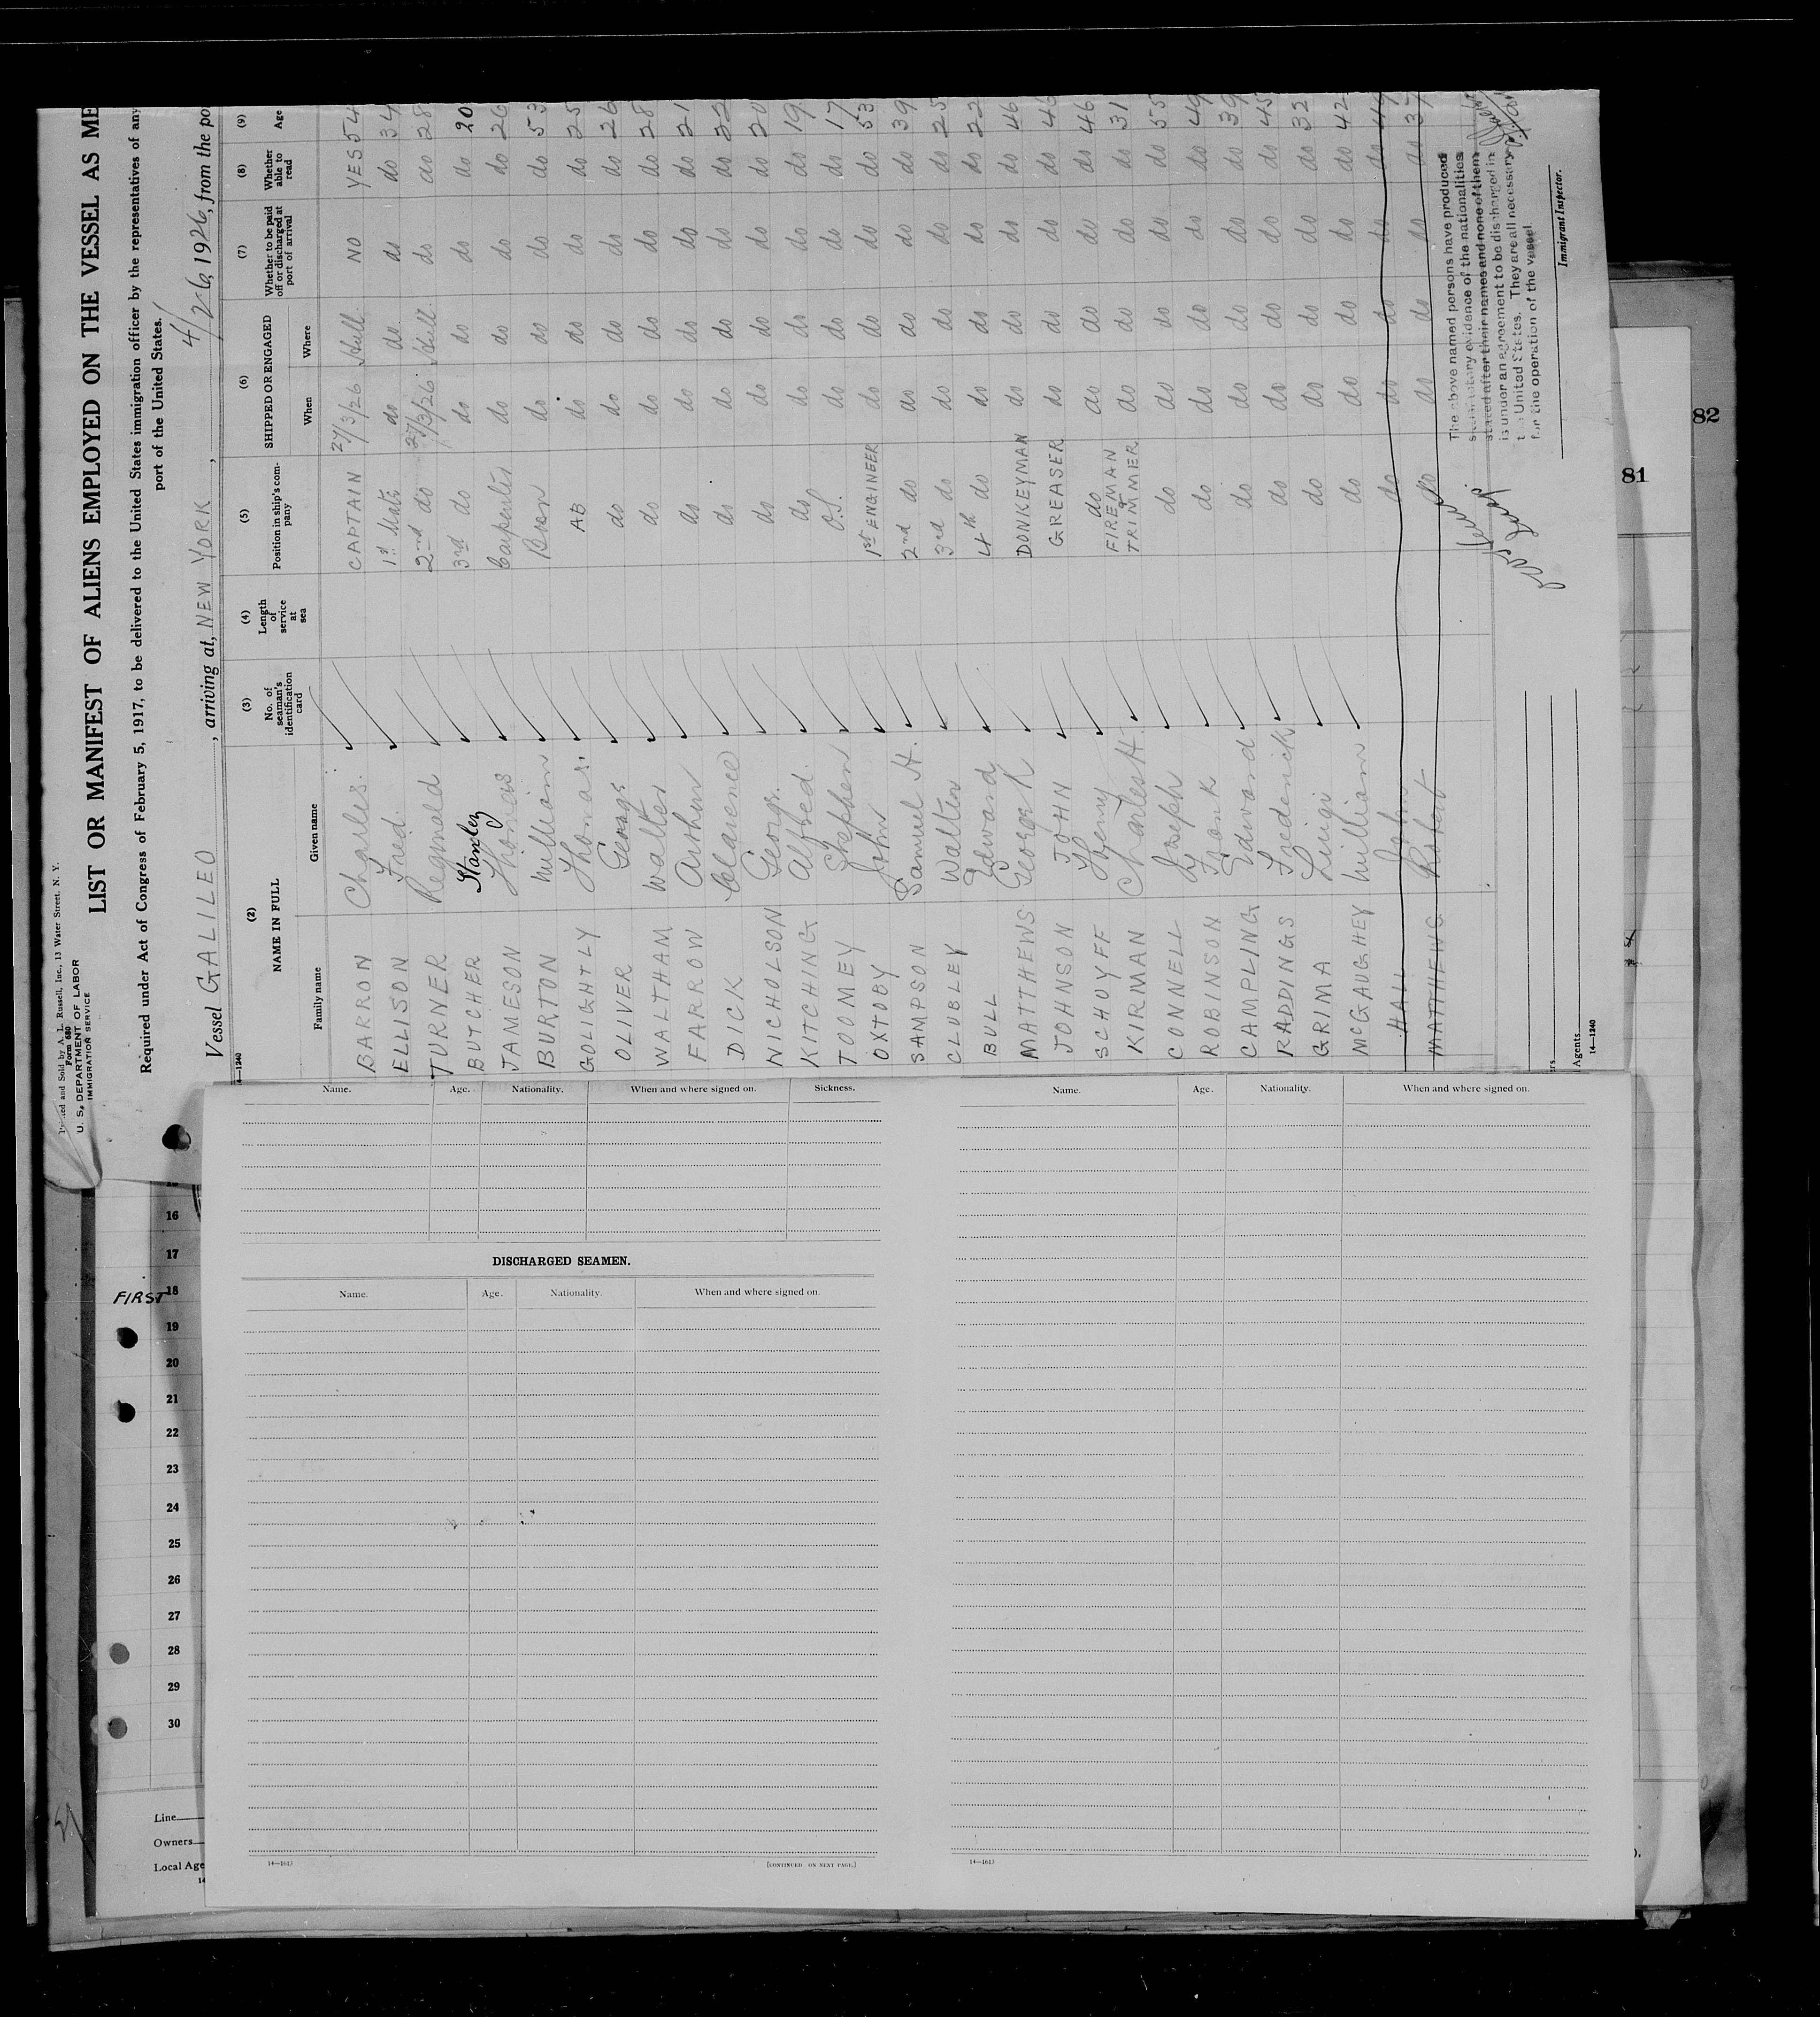 Printed and Sold by A. L. Russell, Inc., 13 Water Street, N. Y.
Form 680
U. S. DEPARTMENT OF LABOR
IMMIGRATION SERVICE
LIST OR MANIFEST OF ALIENS EMPLOYED ON THE VESSEL AS ME
Required under Act of Congress of February 5, 1917, to be delivered to the United States immigration officer by the representatives of any
port of the United States.
Vessel GALILEO, arriving at, NEW YORK, 4/26, 1926, from the po
14—1240
(2) (3) (4) (5) (6) (7) (8) (9)
NAME IN FULL No. of seaman's identification card Length of service at sea Position in ship's company SHIPPED OR ENGAGED Whether to be paid off or discharged at port of arrival Whether able to read Age
Family name Given name When Where
BARRON Charles. CAPTAIN 27/3/26 Hull. NO YES 54
ELLISON Fred. 1st Mate do do do do 34
TURNER Reginald 2nd do 27/3/26 Hull. do do 28
BUTCHER Stanley 3rd do do do do do 20
JAMESON Thomas Carpenter do do do do 26
BURTON William Bosn do do do do 53
GOLIGHTLY Thomas. AB do do do do 25
OLIVER George do do do do do 26
WALTHAM Walter do do do do do 28
FARROW Arthur do do do do do 21
DICK Clarence do do do do do 22
NICHOLSON George. do do do do do 20
KITCHING Alfred. do do do do do 19
TOOMEY Stephen O.S. do do do do 17
OXTOBY John 1st ENGINEER do do do do 53
SAMPSON Samuel H. 2nd do do do do do 39
CLUBLEY Walter 3rd do do do do do 25
BULL Edward 4th do do do do do 22
MATTHEWS George K DONKEYMAN do do do do 46
JOHNSON JOHN GREASER do do do do 46
SCHUYFF Henry do do do do do 46
KIRMAN Charles H. FIREMAN & TRIMMER do do do do 31
CONNELL Joseph do do do do do 55
ROBINSON Frank do do do do do 49
CAMPLING Edward do do do do do 39
RADDINGS Frederick do do do do do 45
GRIMA Luigi do do do do do 32
McGAUGHEY William do do do do do 42
HALL John do do do do do 49
MATTHEWS Robert do do do do do 37
The above named persons have produced
satisfactory evidence of the nationalities
stated after their names and none of them
is under an agreement to be discharged in
the United States. They are all necessary
for the operation of the vessel.
Immigrant Inspector.
Agents
14—1240
82
81
Name. Age. Nationality. When and where signed on. Sickness.
DISCHARGED SEAMEN.
Name. Age. Nationality. When and where signed on.
14—1613
[CONTINUED ON NEXT PAGE.]
Name. Age. Nationality. When and where signed on.
14—1613
16
17
FIRST 18
19
20
21
22
23
24
25
26
27
28
29
30
Line
Owners
Local Age
14